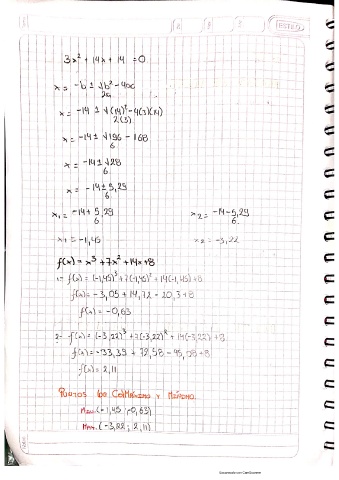 3x² + 14x + 14 = 0
x = -b ± √b² - 4ac
2a
x = -14 ± √(14)² - 4(3)(14)
2(3)
x = -14 ± √196 - 168
6
x = -14 ± √28
6
x = -14 ± 5,29
6
x₁ = -14 + 5,29
6
x₂ = -14 - 5,29
6
x₁ = -1,45
x₂ = -3,22
f(x) = x³ + 7x² + 14x + 8
1- f(x) = (-1,45)³ + 7(-1,45)² + 14(-1,45) + 8
f(x) = -3,05 + 14,72 - 20,3 + 8
f(x) = -0,63
2- f(x) = (-3,22)³ + 7(-3,22)² + 14(-3,22) + 8
f(x) = -33,39 + 72,58 - 45,08 + 8
f(x) = 2,11
Puntos de Máximo y Mínimo
Min. (-1,45 ; -0,63)
Max. (-3,22 ; 2,11)